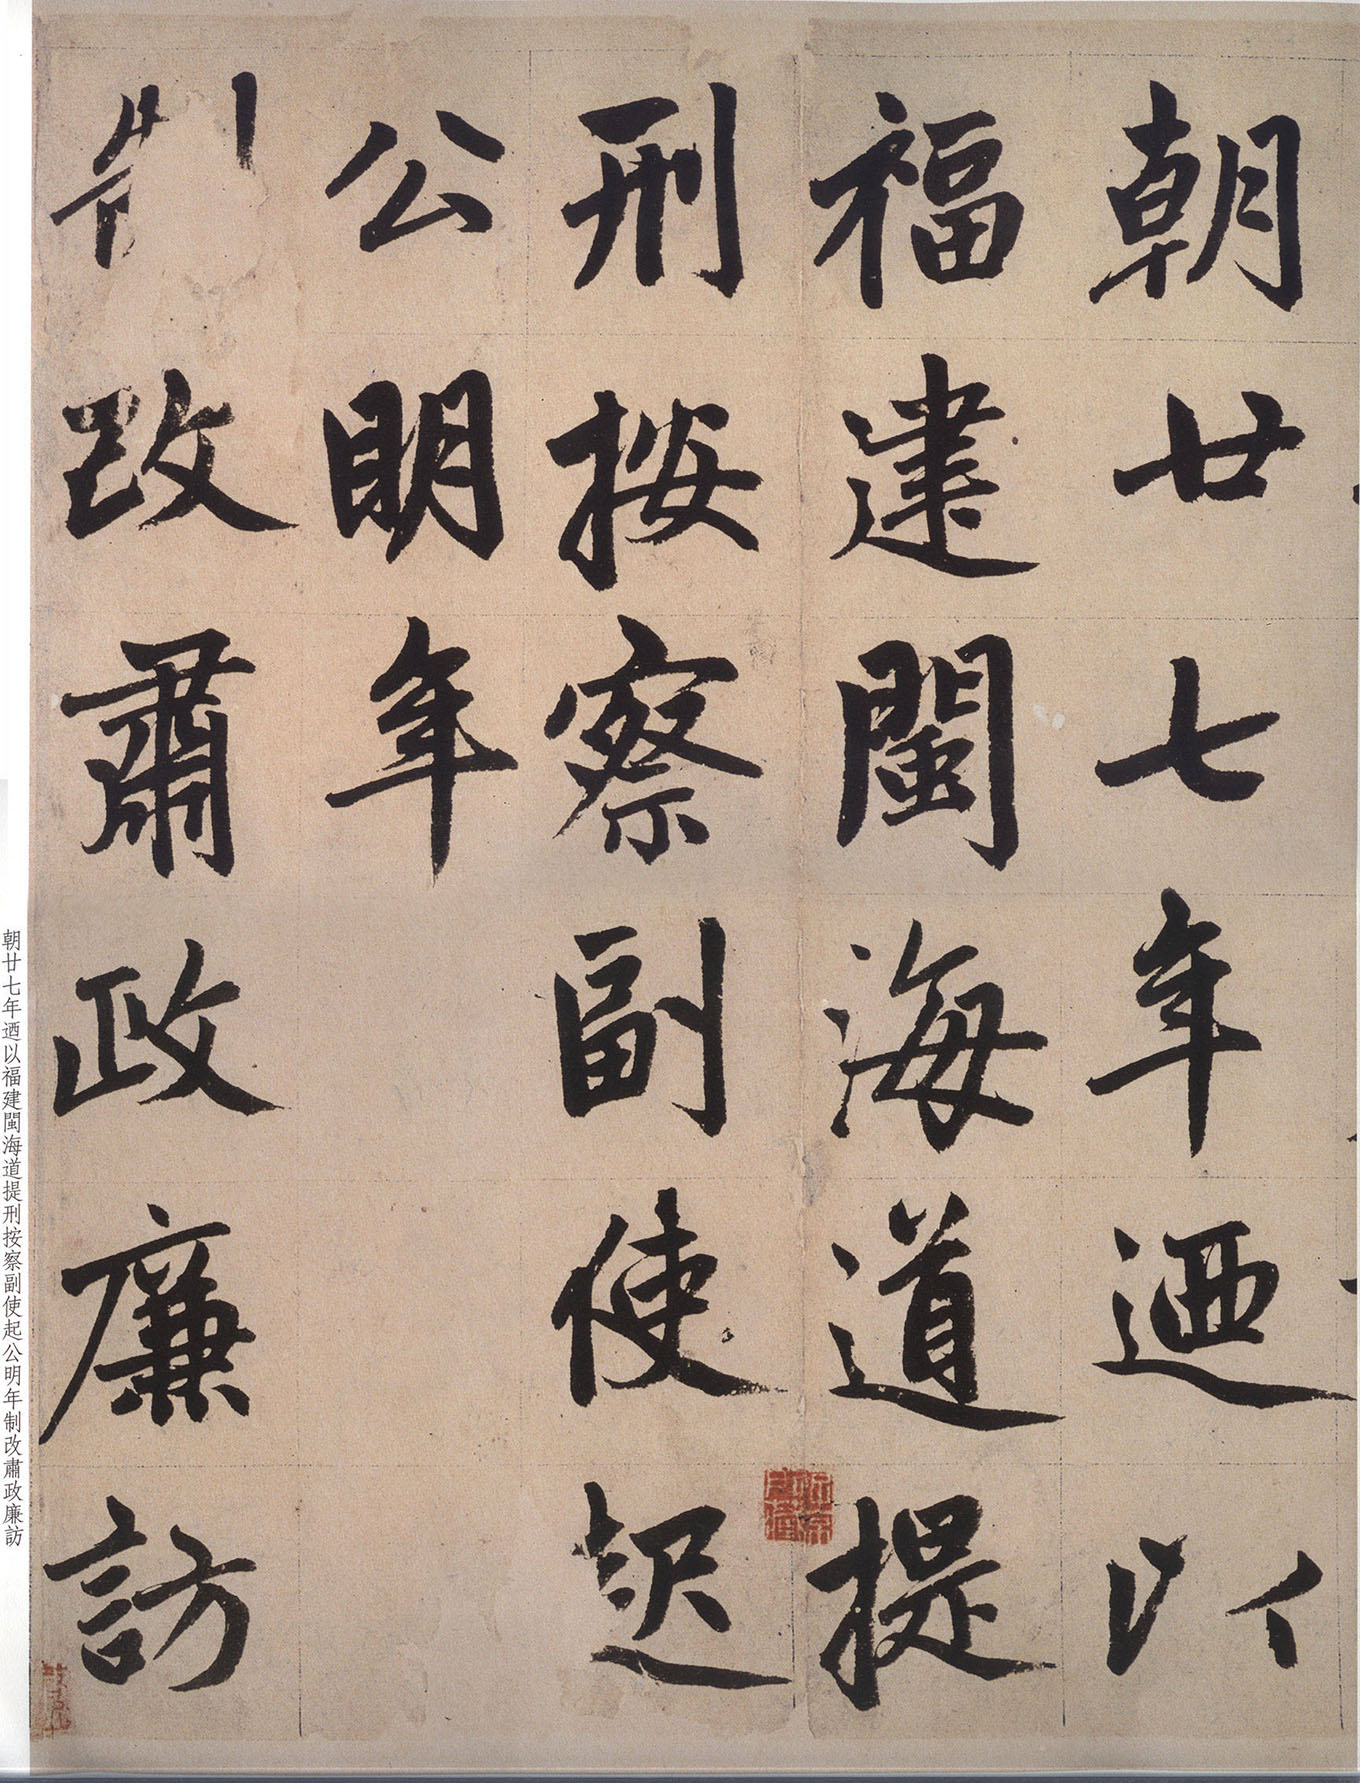 朝廿七年迺以
福建閩海道提
刑按察副使起
公明年
制改肅政廉訪
朝廿七年迺以福建閩海道提刑按察副使起公明年制改肅政廉訪